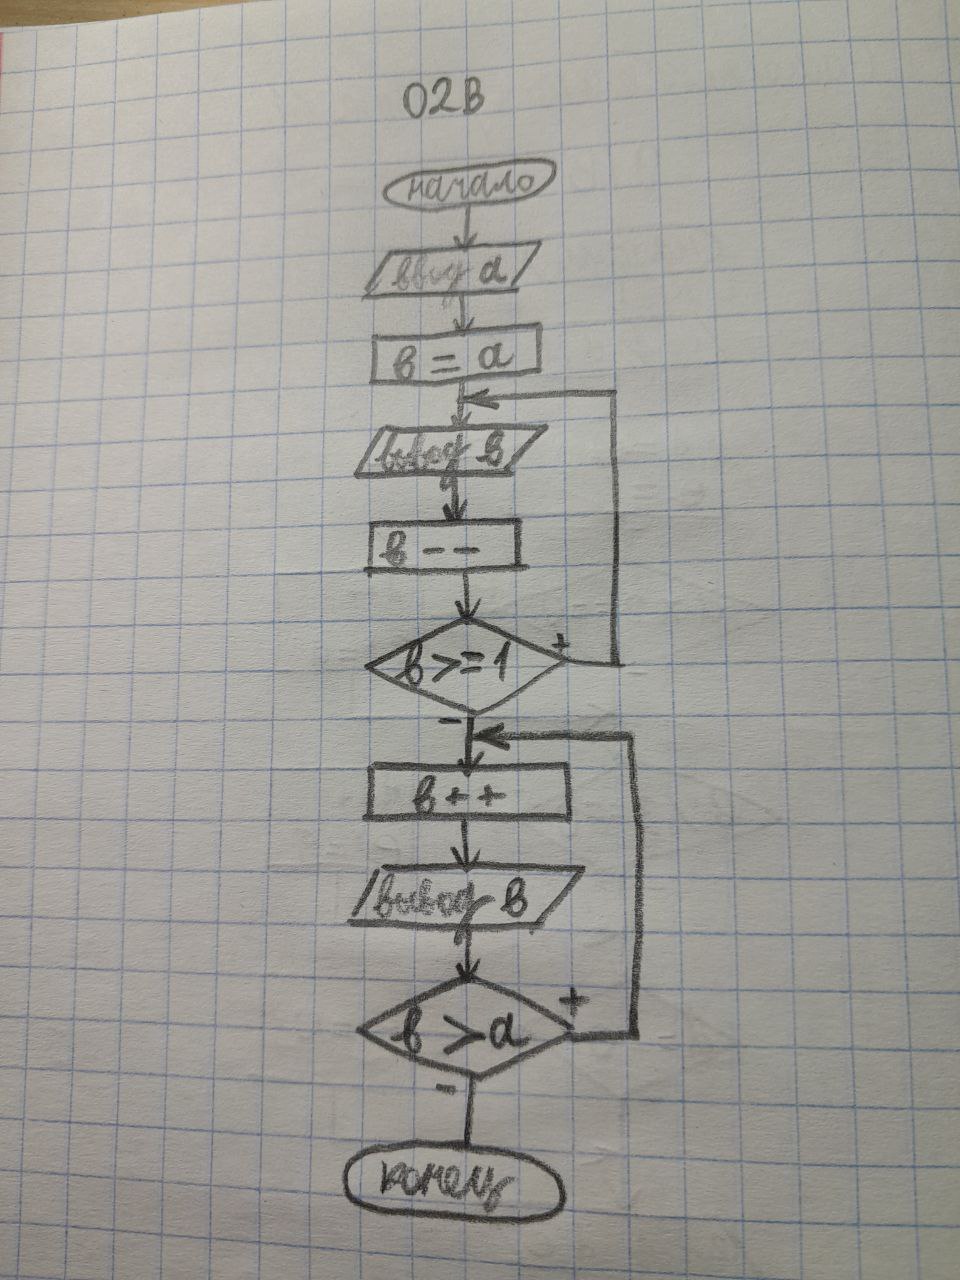 02В
начало
ввод а
в = а
вывод в
в - -
в >= 1
+
-
в + +
вывод в
в > а
+
-
конец